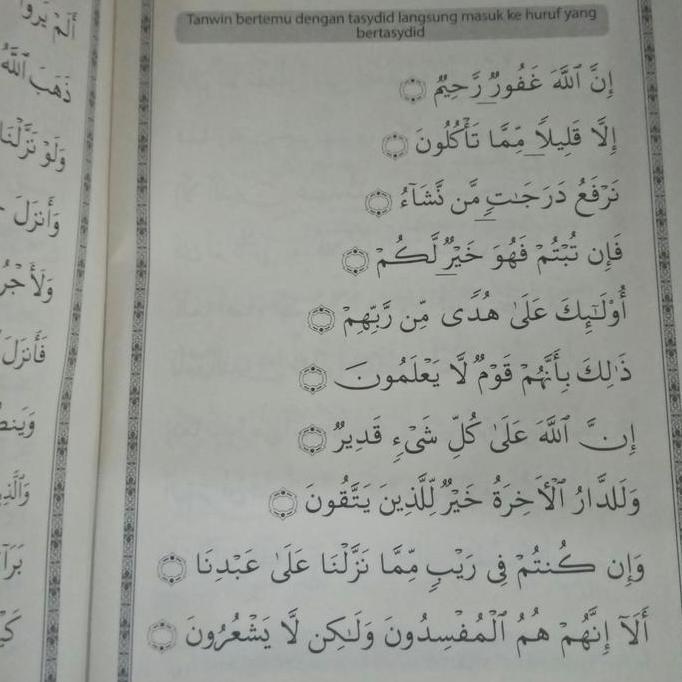 Tanwin bertemu dengan tasydid langsung masuk ke huruf yang
bertasydid
إِنَّ ٱللَّهَ غَفُورٌ رَّحِيمٌ
إِلَّا قَلِيلًا مِّمَّا تَأْكُلُونَ
نَرْفَعُ دَرَجَٰتٍ مَّن نَّشَآءُ
فَإِن تُبْتُمْ فَهُوَ خَيْرٌ لَّكُمْ
أُو۟لَٰٓئِكَ عَلَىٰ هُدًى مِّن رَّبِّهِمْ
ذَٰلِكَ بِأَنَّهُمْ قَوْمٌ لَّا يَعْلَمُونَ
إِنَّ ٱللَّهَ عَلَىٰ كُلِّ شَىْءٍ قَدِيرٌ
وَلَلدَّارُ ٱلْأَخِرَةُ خَيْرٌ لِّلَّذِينَ يَتَّقُونَ
وَإِن كُنتُمْ فِى رَيْبٍ مِّمَّا نَزَّلْنَا عَلَىٰ عَبْدِنَا
أَلَآ إِنَّهُمْ هُمُ ٱلْمُفْسِدُونَ وَلَٰكِن لَّا يَشْعُرُونَ
أَلَمْ يَرَوْا
ذَهَبَ ٱللَّهُ
وَلَوْ نَزَّلْنَا
وَأَنزَلَ
فَأَنزَلَ